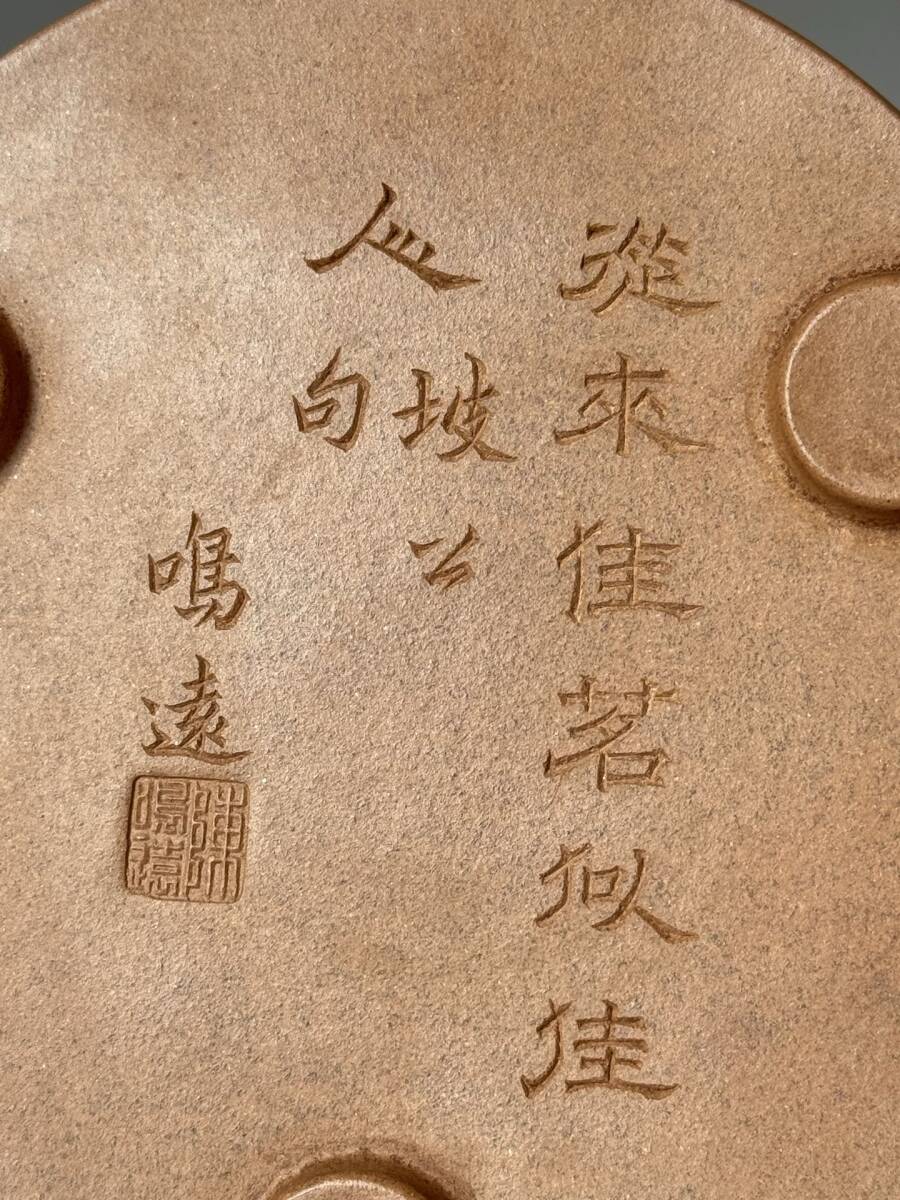 從來佳茗似佳
人
坡公
句
鳴遠
陳鳴遠